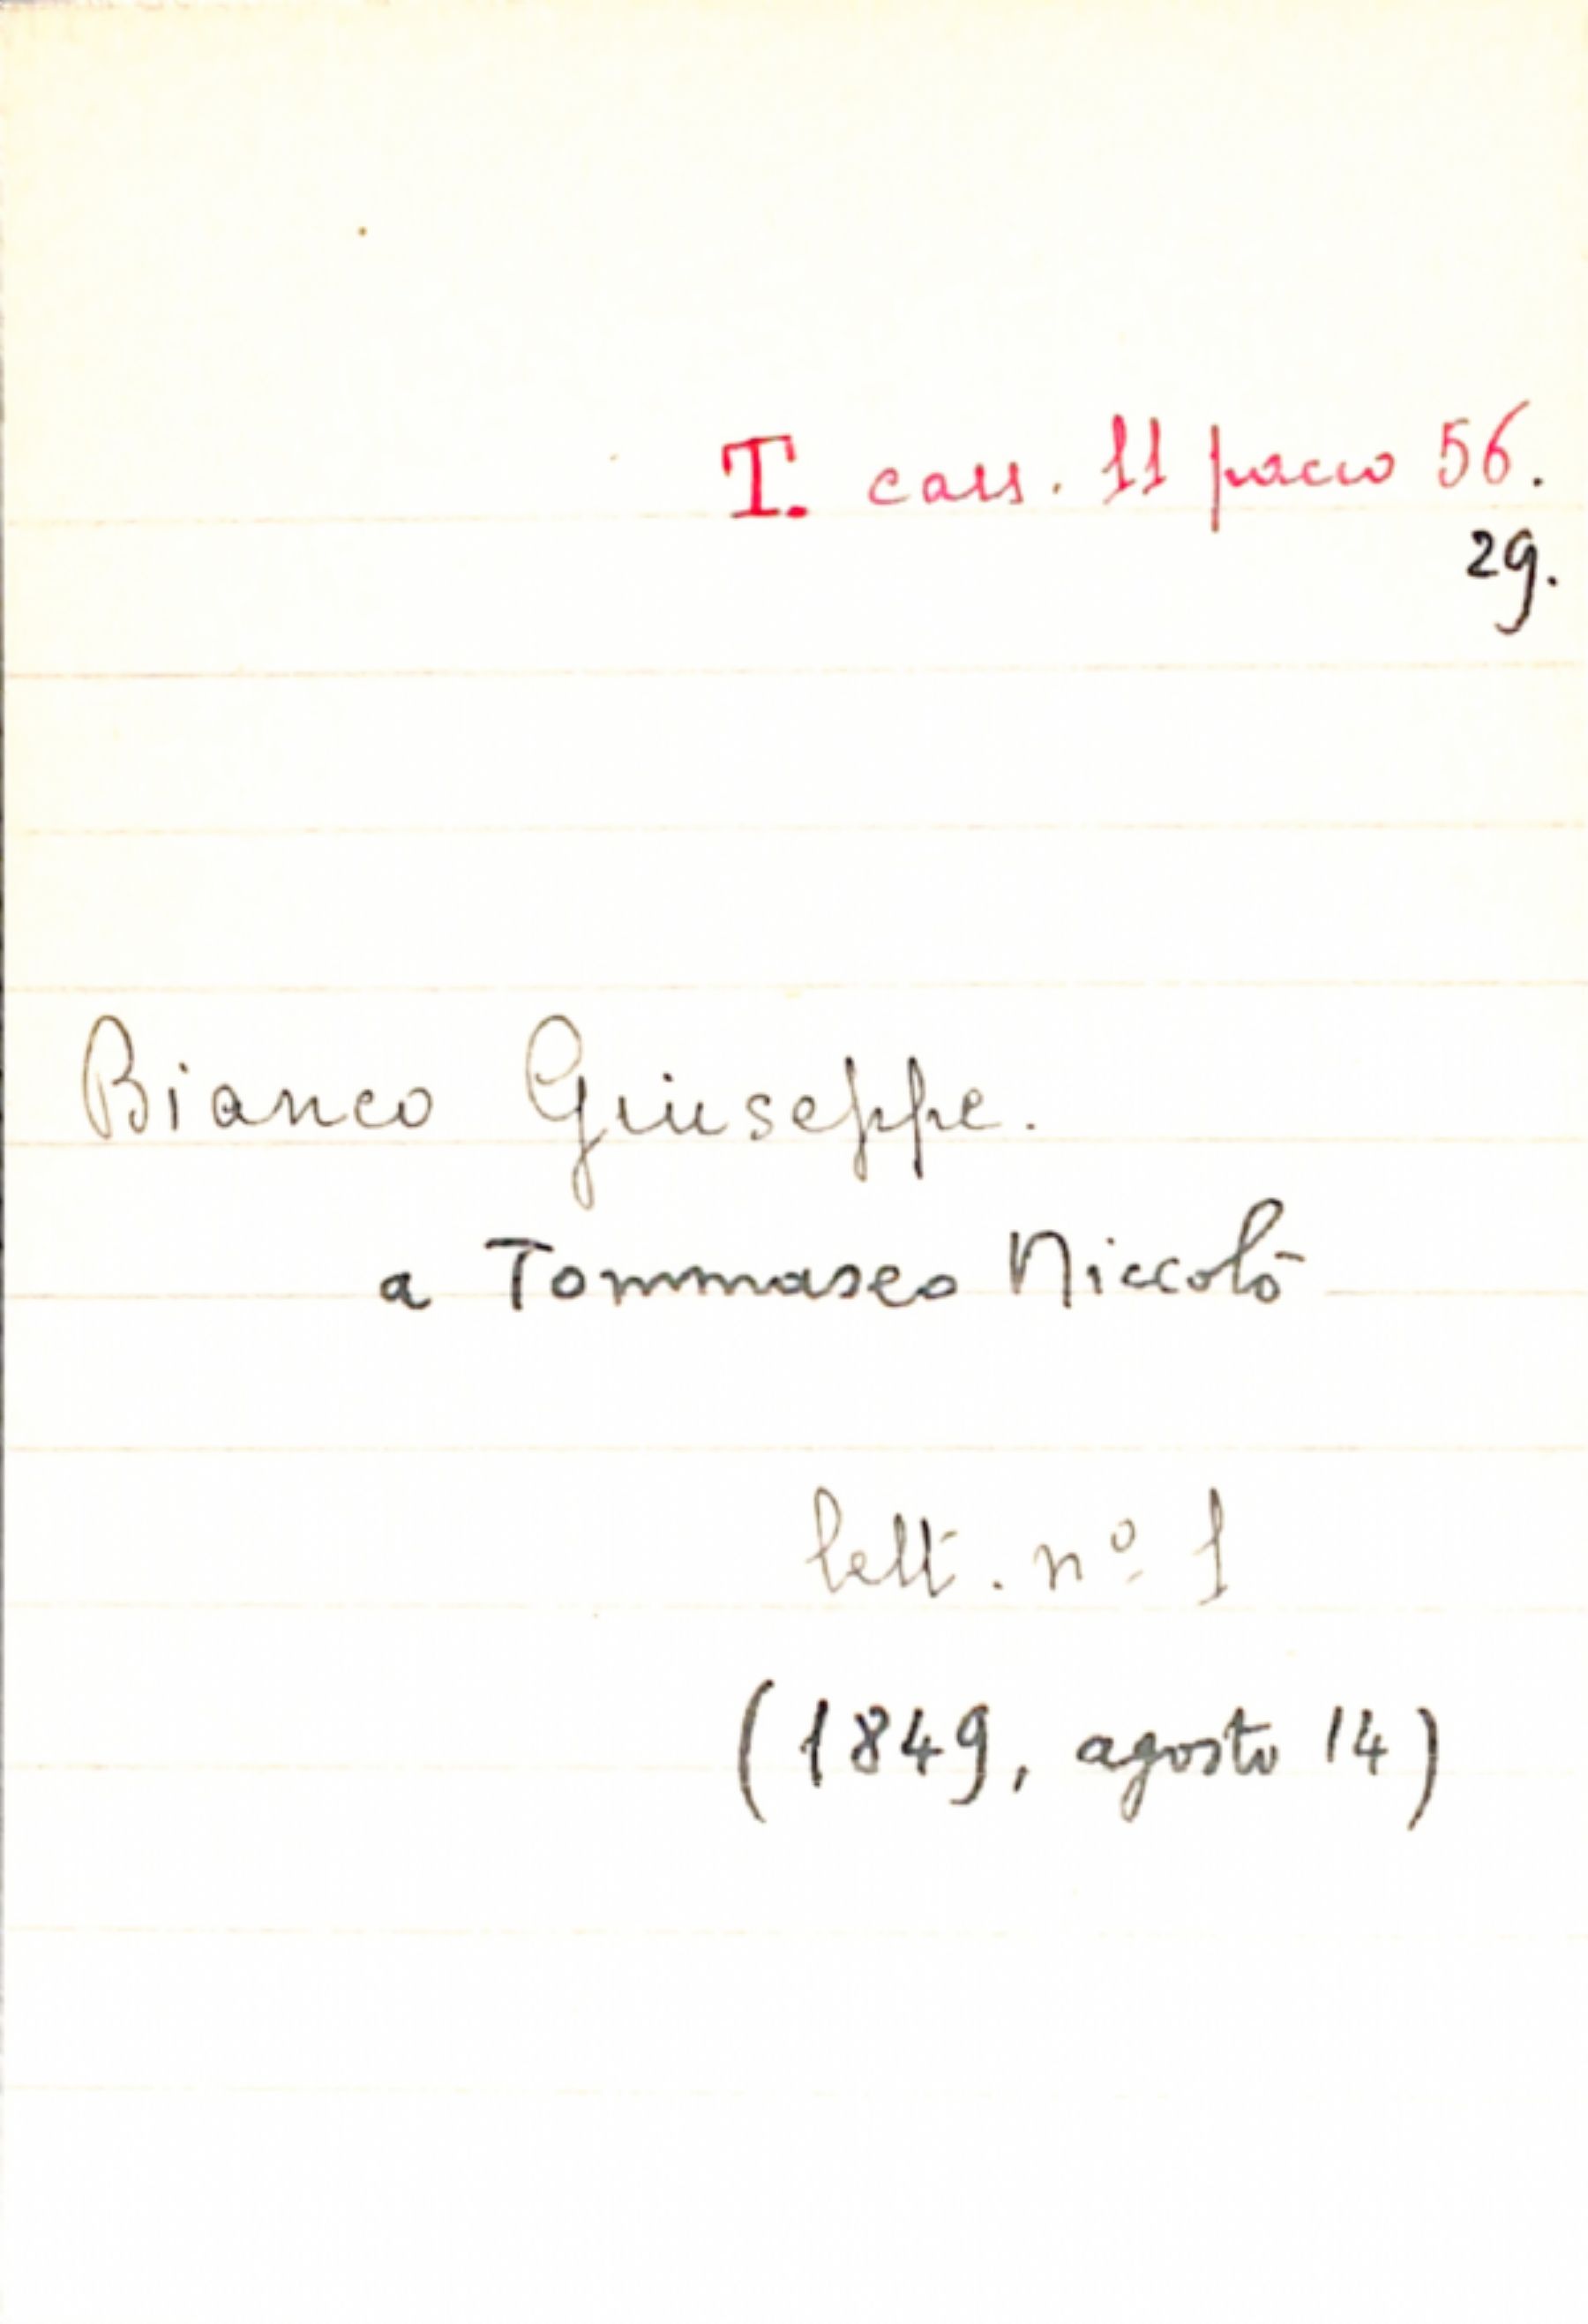 T. cass. 11 pacco 56.
29.
Bianco Giuseppe.
a Tommaseo Niccolò
lett. nº 1
(1849, agosto 14)